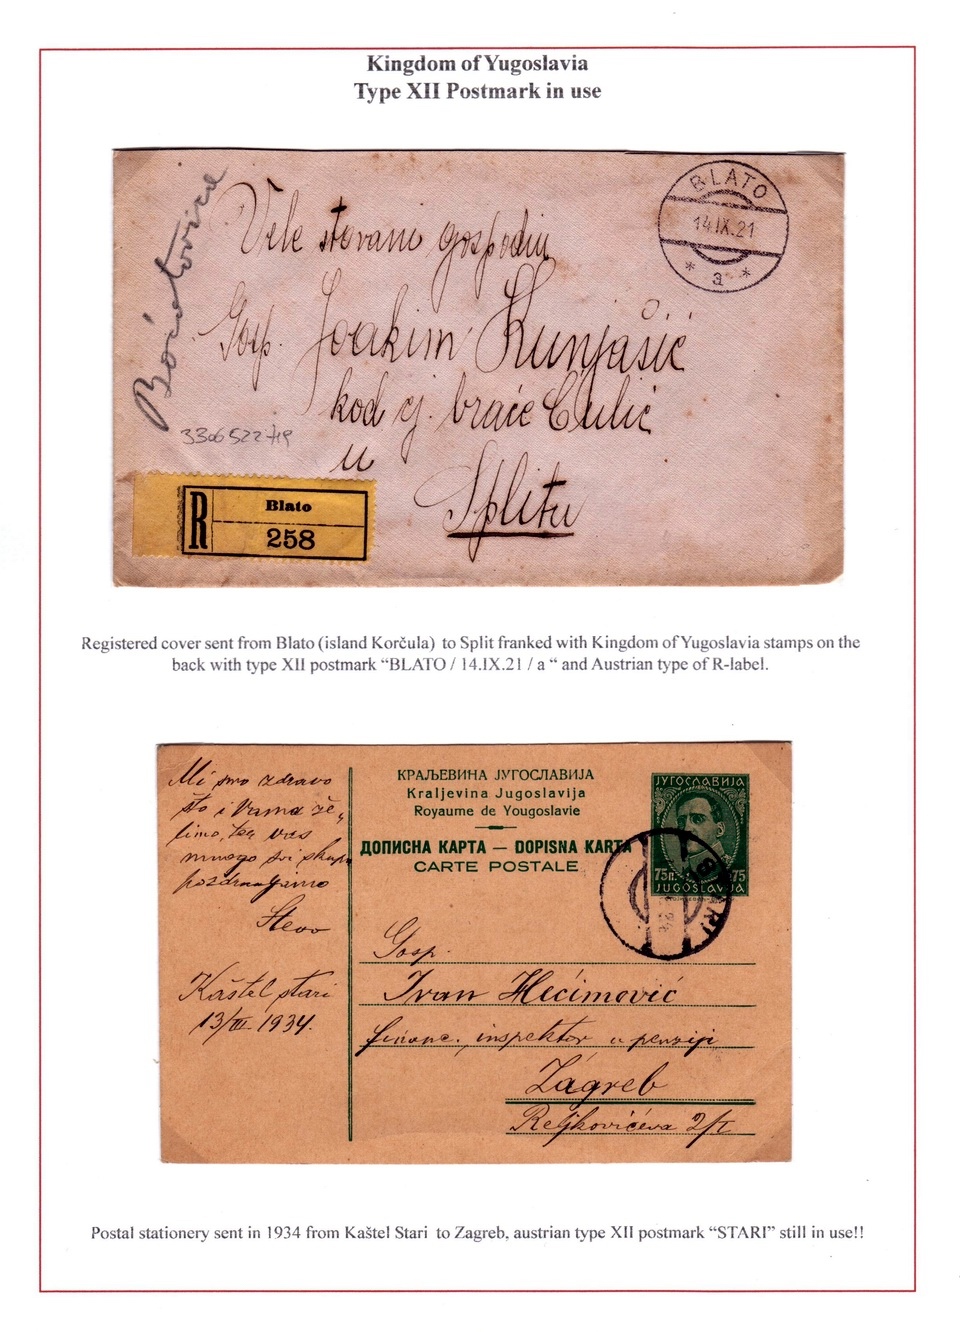 Kingdom of Yugoslavia
Type XII Postmark in use
BLATO
14.IX.21
* a *
Vele štovani gospodin
Gosp. Joakim Kunjašić
kod cj. braće Čulić
u
Splitu
3306522719
R
Blato
258
Registered cover sent from Blato (island Korčula) to Split franked with Kingdom of Yugoslavia stamps on the
back with type XII postmark “BLATO / 14.IX.21 / a “ and Austrian type of R-label.
Mi smo zdravo
što i Vama že„
limo, te Vas
mnogo svi skupa
pozdravljamo
Stevo
Kaštel stari
13/III. 1934.
КРАЉЕВИНА ЈУГОСЛАВИЈА
Kraljevina Jugoslavija
Royaume de Yougoslavie
ДОПИСНА КАРТА — DOPISNA KARTA
CARTE POSTALE
ЈУГОСЛАВИЈА
75п. 75
JUGOSLAVIJA
Gosp.
Ivan Hećimović
financ. inspektor u penziji
Zagreb
Reljkovićeva 2/I
Postal stationery sent in 1934 from Kaštel Stari to Zagreb, austrian type XII postmark “STARI” still in use!!